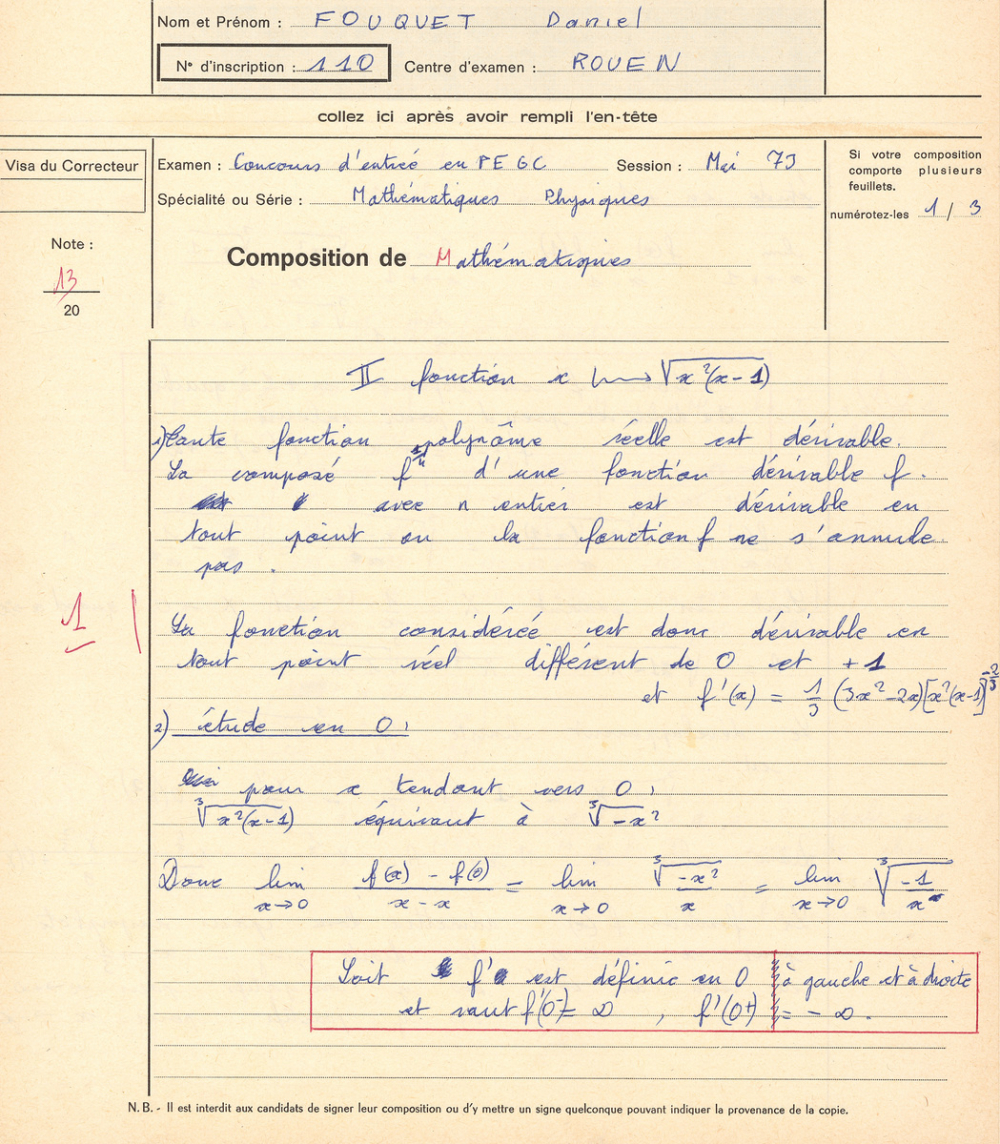 Nom et Prénom : FOUQUET Daniel
N° d'inscription : 110 Centre d'examen : ROUEN
collez ici après avoir rempli l'en-tête
Visa du Correcteur
Examen : Concours d'entrée en PEGC Session : Mai 73
Spécialité ou Série : Mathématiques Physiques
Si votre composition
comporte plusieurs
feuillets.
numérotez-les 1 / 3
Note :
13
20
Composition de Mathématiques
II fonction x ⟼ √x²(x-1)
1) Toute fonction polynôme réelle est dérivable.
La composé f^1/n d'une fonction dérivable f.
avec n entier est dérivable en
tout point ou la fonction f ne s'annule
pas.
1
La fonction considérée est donc dérivable en
tout point réel différent de 0 et +1
et f'(x) = 1/3 (3x²-2x)[x²(x-1)]^-2/3
2) étude en 0 :
pour x tendant vers 0,
∛x²(x-1) équivaut à ∛-x²
Donc lim x→0 f(x) - f(0) / x - x = lim x→0 ∛-x² / x = lim x→0 ∛-1/x
Soit f' est définie en 0 à gauche et à droite
et vaut f'(0-) = ∞ , f'(0+) = - ∞.
N. B. - Il est interdit aux candidats de signer leur composition ou d'y mettre un signe quelconque pouvant indiquer la provenance de la copie.